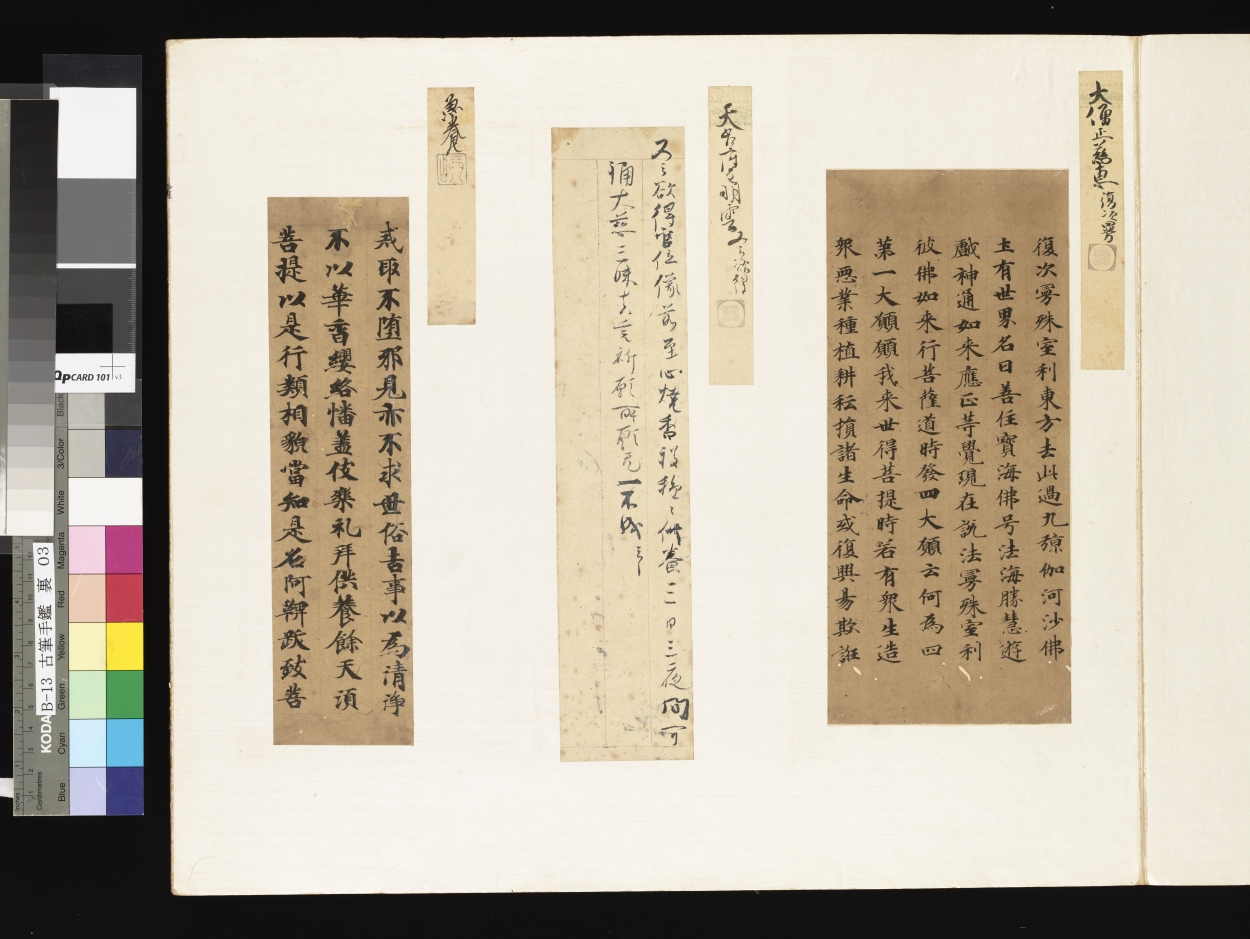 大僧正慈恵 復次曼
復次曼殊室利東方去此過九殑伽河沙佛
土有世界名曰善住寶海佛号法海勝慧遊
戲神通如来應正等覺現在說法曼殊室利
彼佛如来行菩薩道時發四大願云何為四
第一大願願我来世得菩提時若有衆生造
衆惡業種植耕耘損諸生命或復興易欺誑
天台座主明雲 又云欲得
又云欲得官位像若至心燒香散種々供養三日三夜間可
誦大慈三昧 祈願所願无一不成云々
戒取不堕邪見亦不求世俗吉事以為清淨
不以華香纓絡幡蓋伎樂礼拜供養餘天須
菩提以是行類相貌當知是名阿鞞跋致菩
QPCARD 101 v3
B-13 古筆手鑑 裏 03
KODA
Inches
Centimetres
Blue
Cyan
Green
Yellow
Red
Magenta
White
3/Color
Black